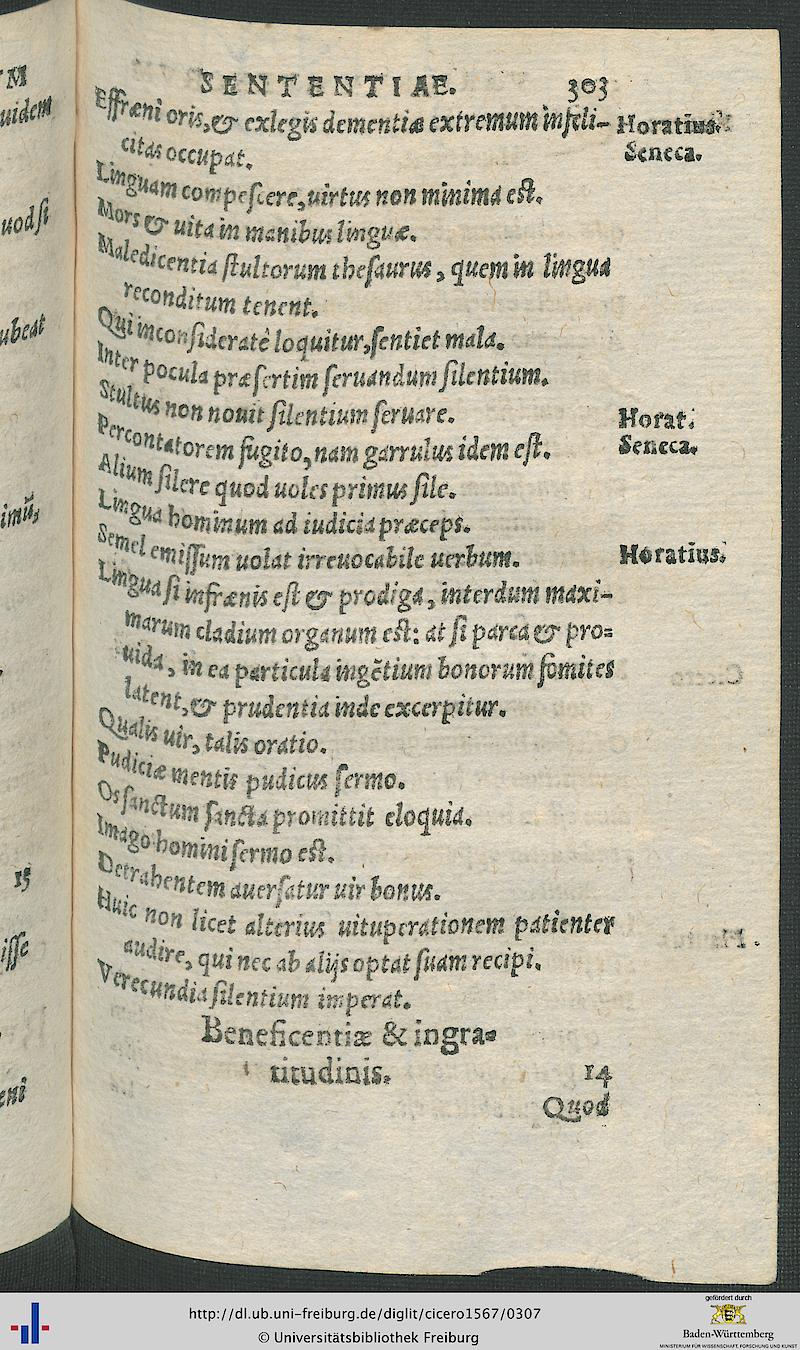 SENTENTIAE. 303
Effræni oris, & exlegis dementiæ extremum infeli-
citas occupat.
Horatius.
Seneca.
Linguam compescere, uirtus non minima est.
Mors & uita in manibus linguæ.
Maledicentia stultorum thesaurus, quem in lingua
reconditum tenent.
Qui inconsideratè loquitur, sentiet mala.
Inter pocula præsertim seruandum silentium.
Stultus non nouit silentium seruare.
Percontatorem fugito, nam garrulus idem est.
Horat.
Seneca.
Alium silere quod uoles primus sile.
Lingua hominum ad iudicia præceps.
Semel emissum uolat irreuocabile uerbum.
Horatius.
Lingua si infrænis est & prodiga, interdum maxi-
marum cladium organum est: at si parca & pro=
uida, in ea particula ingẽtium bonorum fomites
latent, & prudentia inde excerpitur.
Qualis uir, talis oratio.
Pudiciæ mentis pudicus sermo.
Os sanctum sancta promittit eloquia.
Imago homini sermo est.
Detrahentem auersatur uir bonus.
Huic non licet alterius uituperationem patienter
audire, qui nec ab alijs optat suam recipi.
Verecundia silentium imperat.
Beneficentiæ & ingra=
titudinis. 14
Quod
M
uidem
uod si
ubeat
imũ,
15
isse
eni
http://dl.ub.uni-freiburg.de/diglit/cicero1567/0307
© Universitätsbibliothek Freiburg
gefördert durch
Baden-Württemberg
MINISTERIUM FÜR WISSENSCHAFT, FORSCHUNG UND KUNST